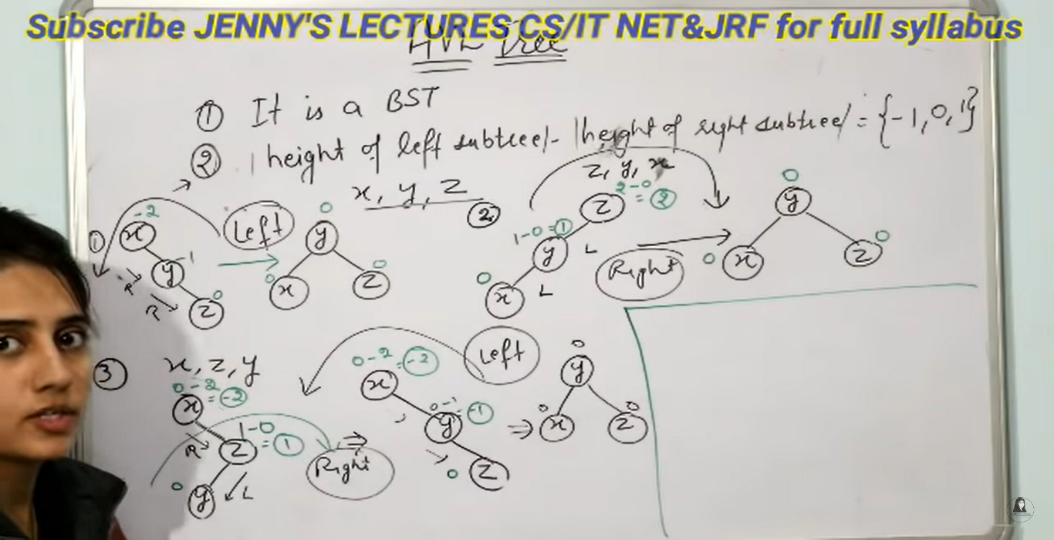 Subscribe JENNY'S LECTURES CS/IT NET&JRF for full syllabus
AVL Tree
① It is a BST
② |height of left subtree| - |height of right subtree| = {-1, 0, 1}
x, y, z
z, y, x
①
-2
x
-1
y
0
z
R
R
Left
0
y
0
x
0
z
②
2-0
= 2
z
1-0 = 1
y
0
x
L
L
Right
0
y
0
x
0
z
③ x, z, y
0-2
= -2
x
1-0
= 1
z
0
y
R
L
⇒
Right
0-2 = -2
x
0-1 = -1
y
0
z
Left
⇒
0
y
0
x
0
z